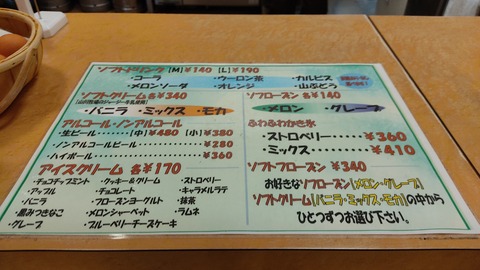 ソフトドリンク【M】¥140【L】¥190
・コーラ ・ウーロン茶 ・カルピス
・メロンソーダ ・オレンジ ・山ぶどう
ソフトクリーム 各¥340
・バニラ ・ミックス ・モカ
アルコール・ノンアルコール
・生ビール‥‥(中)¥480(小)¥380
・ノンアルコールビール‥‥‥‥¥280
・ハイボール‥‥‥‥‥‥‥¥360
アイスクリーム 各¥170
・チョコチップミント ・クッキー&クリーム ・ストロベリー
・アップル ・チョコレート ・キャラメルラテ
・バニラ ・フローズンヨーグルト ・抹茶
・黒みつきなこ ・メロンシャーベット ・ラムネ
・グレープ ・ブルーベリーチーズケーキ
ソフローズン 各¥140
・メロン ・グレープ
ふわふわかき氷
・ストロベリー‥‥‥¥360
・ミックス‥‥‥‥‥¥410
ソフトフローズン ¥340
お好きなソフローズン【メロン・グレープ】
ソフトクリーム【バニラ・ミックス・モカ】の中から
ひとつずつお選び下さい。